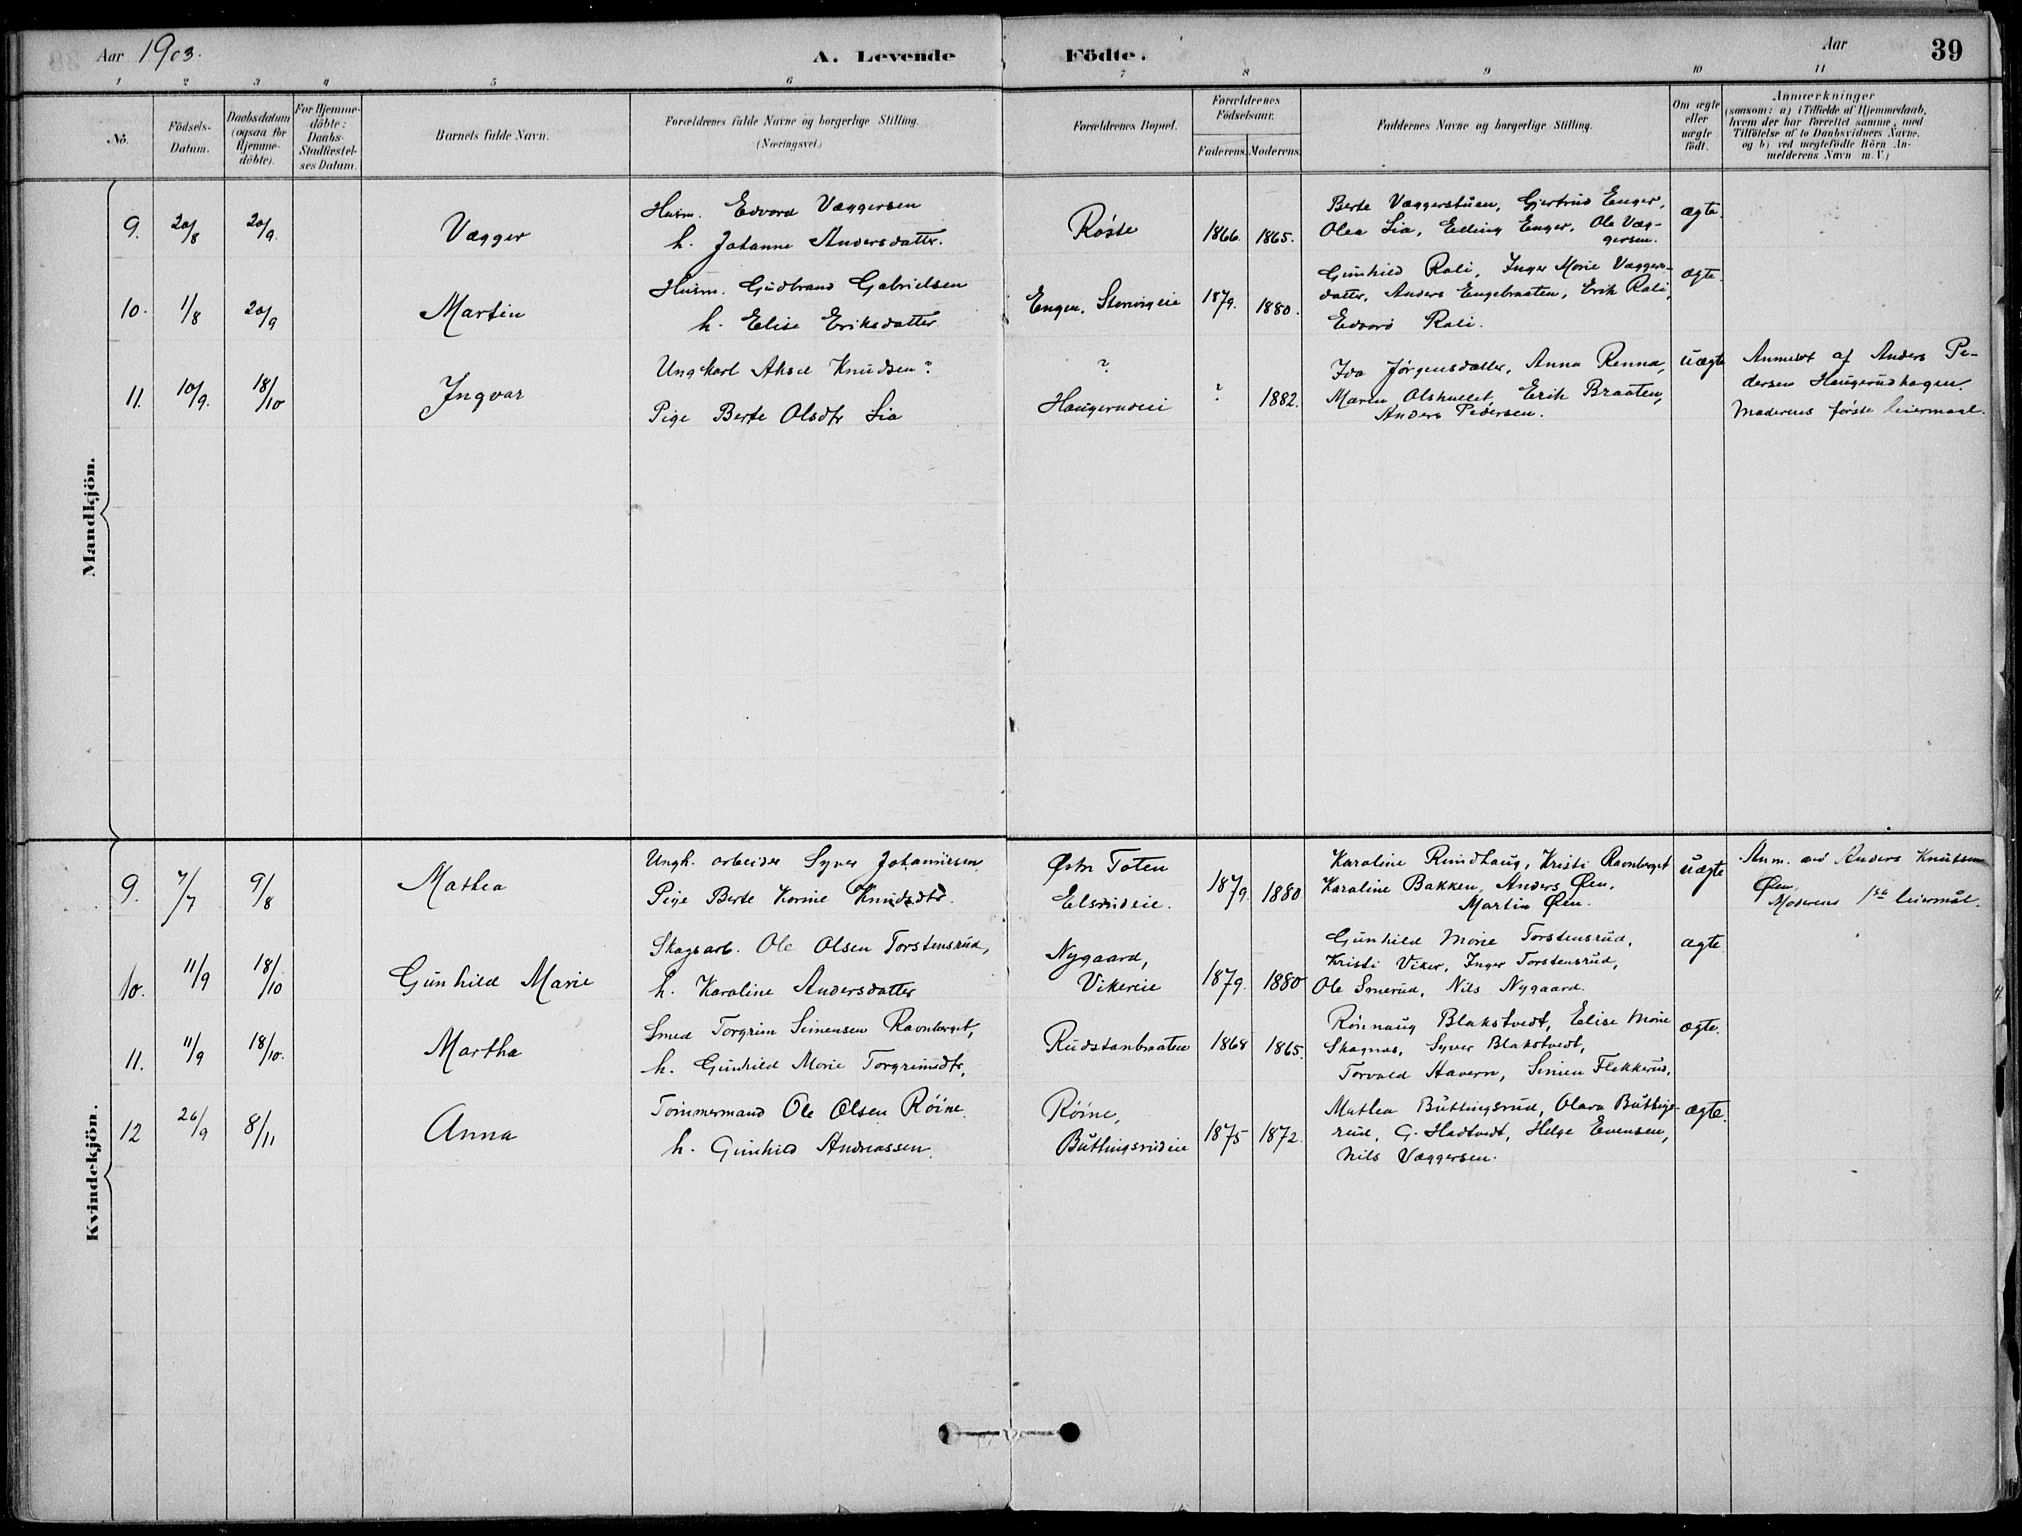 Aar 1903.
A. Levende Födte.
Aar
39
1 2 3 4 5 6 7 8 9 10 11
No.
Födsels-
Datum.
Daabsdatum
(ogsaa for
Hjemme-
döbte).
For Hjemme-
döbte:
Daabs-
Stadfæstel-
ses Datum.
Barnets fulde Navn.
Forældrenes fulde Navne og borgerlige Stilling.
(Næringsvei.)
Forældrenes Bopæl.
Forældrenes
Födselsaar.
Faderens. Moderens.
Faddernes Navne og borgerlige Stilling.
Om ægte
eller
uægte
födt.
Anmærkninger
(saasom: a) i Tilfælde af Hjemmedaab,
hvem der har forrettet samme, med
Tilföielse af to Daabsvidners Navne.
og b) ved uægtefödte Börn An-
melderens Navn m. V.)
Mandkjön.
9. 20/8 20/9. Vægger
Husm. Edvard Væggersen
h. Johanne Andersdatter.
Røste 1866. 1865.
Berte Væggerstuen, Gjertrud Enger,
Olea Lia, Elling Enger, Ole Væg-
gersen.
ægte.
10. 1/8 20/9 Martin
Husm. Gudbrand Gabrielsen
h. Elise Eriksdatter
Engen, Storvigeie 1879. 1880.
Gunhild Rali, Inger Marie Væggers-
datter, Anders Engebraaten, Erik Rali,
Edvard Rali.
ægte.
11. 10/9. 18/10 Ingvar
Ungkarl Aksel Knudsen?
Pige Berte Olsdtr Lia
?
Haugerudeie ? 1882.
Ida Jørgensdatter, Anna Renna,
Maren Olshullet, Erik Braaten,
Anders Pedersen.
uægte
Anmeldt af Anders Pe-
dersen Haugerudhagen.
Moderens første leiermaal.
Kvindekjön.
9. 7/7 9/8 Mathea
Ungk. arbeider Syver Johannesen
Pige Berte Karine Knudsdtr.
Østr Toten
Elsrudeie. 1879. 1880
Karoline Rundhaug, Kristi Ravnberget
Karoline Bakken, Anders Øen.
Martin Øen.
uægte
Anm. ved Anders Knutsen
Øen.
Moderens 1ste leiermål.
10. 11/9 18/10 Gunhild Marie
Skogsarb. Ole Olsen Torstensrud,
h. Karoline Andersdatter
Nygaard,
Vikereie 1879. 1880
Gunhild Marie Torstensrud,
Kristi Viker, Inger Torstensrud,
Ole Smerud, Nils Nygaard.
ægte
11. 11/9 18/10. Martha
Smed Torgrim Simensen Ravnberget,
h. Gunhild Marie Torgrimsdtr,
Rudstanbraaten 1868 1865.
Rönnaug Blakstvedt, Elise Marie
Skagnæs, Syver Blakstvedt,
Torvald Havern, Simen Flekkerud.
ægte.
12 26/9 8/11 Anna
Tømmermand Ole Olsen Röine
h. Gunhild Andreassen
Röine,
Buttingsrudeie 1875 1872.
Mathea Buttingsrud, Olava Buttings-
rud, G. Hadtvedt, Helge Evensen,
Nils Væggersen.
ægte.